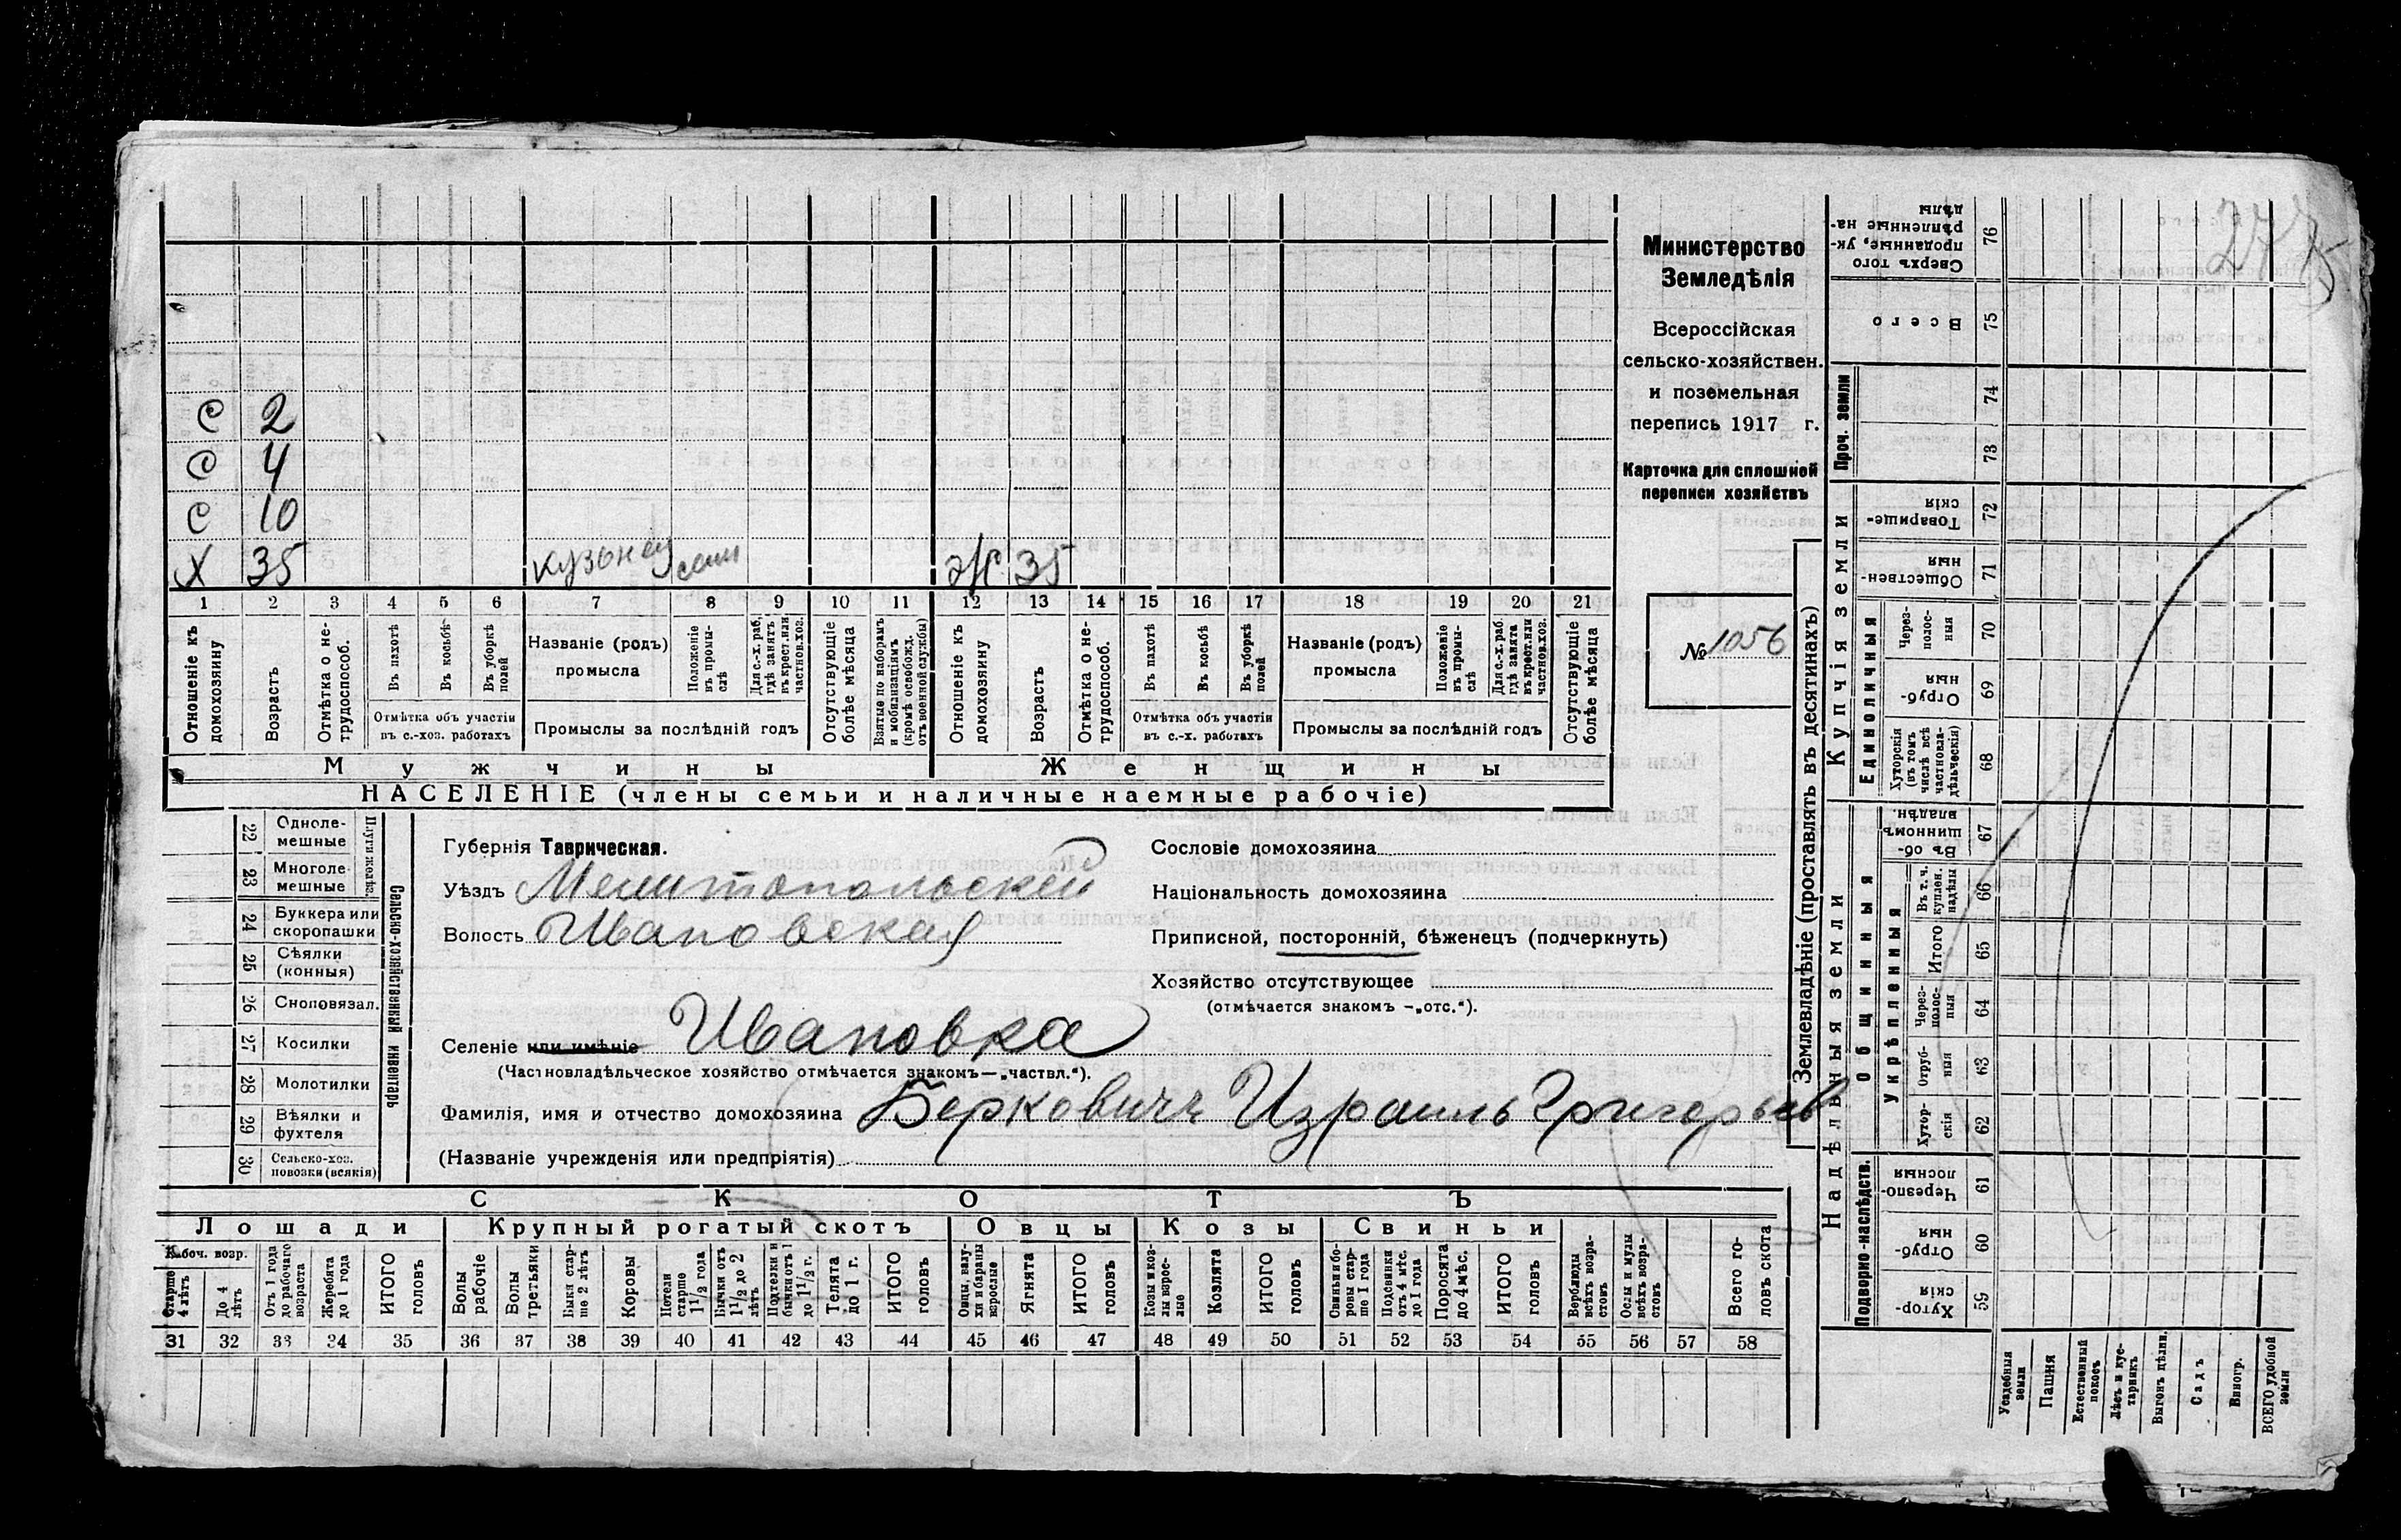 С 2
С 4
С 10
Х 35 кузнец Ж 35
1 2 3 4 5 6 7 8 9 10 11 12 13 14 15 16 17 18 19 20 21
Отношеніе къ домохозяину
Возрастъ
Отмѣтка о не-трудоспособ.
Въ пахотѣ
Въ косьбѣ
Въ уборкѣ полей
Отмѣтка объ участіи
въ с.-хоз. работахъ
Названіе (родъ)
промысла
Положеніе въ промы-слѣ
Для с.-х. раб. гдѣ занятъ въ крест. или частнов. хоз.
Промыслы за послѣдній годъ
Отсутствующіе болѣе мѣсяца
Взятые по наборамъ и мобилизаціямъ (кромѣ освобожд. отъ военной службы)
Отношеніе къ домохозяину
Возрастъ
Отмѣтка о не-трудоспособ.
Въ пахотѣ
Въ косьбѣ
Въ уборкѣ полей
Отмѣтка объ участіи
въ с.-х. работахъ
Названіе (родъ)
промысла
Положеніе въ промы-слѣ
Для с.-х. раб. гдѣ занята въ крест. или частнов. хоз.
Промыслы за послѣдній годъ
Отсутствующіе болѣе мѣсяца
Мужчины Женщины
НАСЕЛЕНІЕ (члены семьи и наличные наемные рабочіе)
Министерство
Земледѣлія
Всероссійская
сельско-хозяйствен.
и поземельная
перепись 1917 г.
Карточка для сплошной
переписи хозяйствъ
№ 1056
Сельско-хозяйственный инвентарь
Плуги желѣз.
22 Одноле-мешные
23 Многоле-мешные
24 Буккера или скоропашки
25 Сѣялки (конныя)
26 Сноповязал.
27 Косилки
28 Молотилки
29 Вѣялки и фухтеля
30 Сельско-хоз. повозки (всякія)
Губернія Таврическая.
Уѣздъ Мелитопольскей
Волость Ивановская
Селеніе или имѣніе Ивановка
(Частновладѣльческое хозяйство отмѣчается знакомъ—„частвл.“).
Фамилія, имя и отчество домохозяина Берковичъ Израиль Григорьев
(Названіе учрежденія или предпріятія)
Сословіе домохозяина
Національность домохозяина
Приписной, посторонній, бѣженецъ (подчеркнуть)
Хозяйство отсутствующее
(отмѣчается знакомъ —„отс.“).
СКОТЪ
Лошади Крупный рогатый скотъ Овцы Козы Свиньи
Рабоч. возр.
Старше 4 лѣтъ
До 4 лѣтъ
Отъ 1 года до рабочаго возраста
Жеребята до 1 года
ИТОГО головъ
Волы рабочіе
Волы третьяки
Быки стар-ше 2 лѣтъ
Коровы
Нетели старше 1 1/2 года
Бычки отъ 1 1/2 до 2 лѣтъ
Подтелки и бычки отъ 1 до 1 1/2 г.
Телята до 1 г.
ИТОГО головъ
Овцы, валу-хи и бараны взрослые
Ягнята
ИТОГО головъ
Козы и коз-лы взрос-лые
Козлята
ИТОГО головъ
Свиньи и бо-ровы стар-ше 1 года
Подсвинки отъ 4 мѣс. до 1 года
Поросята до 4 мѣс.
ИТОГО головъ
Верблюды всѣхъ возра-стовъ
Ослы и мулы всѣхъ возра-стовъ
Всего го-ловъ скота
31 32 33 34 35 36 37 38 39 40 41 42 43 44 45 46 47 48 49 50 51 52 53 54 55 56 57 58
Землевладѣніе (проставлять въ десятинахъ)
Купчія земли
Надѣльныя земли
Проч. земли
Единоличныя
Общинныя
укрѣпленныя
Подворно-наслѣдств.
Сверхъ того проданные, ук-рѣпленные на-дѣлы 76
Всего 75
74
73
Товарище-скія 72
Обществен-ныя 71
Через-полос-ныя 70
Отруб-ныя 69
Хуторскія (въ томъ числѣ всѣ частновла-дѣльческія) 68
Въ об-щинномъ владѣн. 67
Въ т. ч. куплен. надѣлы 66
Итого 65
Через-полос-ныя 64
Отруб-ныя 63
Хутор-скія 62
Черезпо-лосныя 61
Отруб-ныя 60
Хутор-скія 59
Усадебныя земли
Пашня
Естественный покосъ
Лѣсъ и кус-тарникъ
Выгонъ цѣлин.
Садъ
Виногр.
ВСЕГО удобной земли